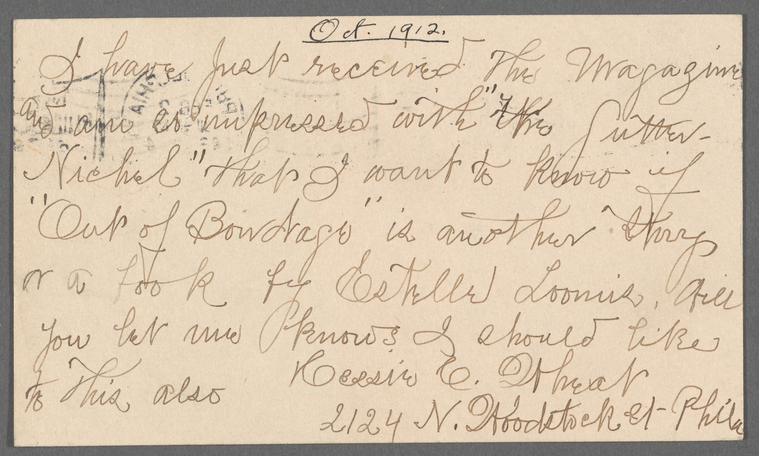 Oct. 1912.
I have just received the Magazine
and am so impressed with "the Gutter-
Nickel" that I want to know if
"Out of Bondage" is another story
or a book by Estelle Loomis. Will
you let me know I should like
to this also
Bessie E. Wheat
2124 N. Woodstock St Phila